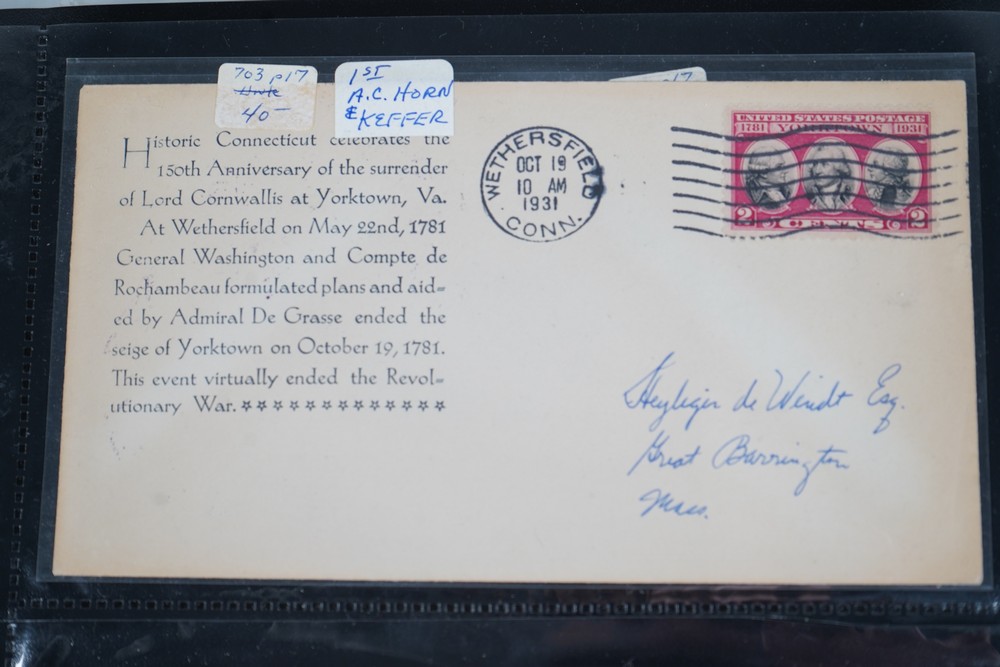 703 p17
Unle
40-
1ST
A.C. HORN
& KEFFER
p17
Historic Connecticut celebrates the
150th Anniversary of the surrender
of Lord Cornwallis at Yorktown, Va.
At Wethersfield on May 22nd, 1781
General Washington and Compte de
Rochambeau formulated plans and aid=
ed by Admiral De Grasse ended the
seige of Yorktown on October 19, 1781.
This event virtually ended the Revol=
utionary War. ☆☆☆☆☆☆☆☆☆☆☆☆☆
WETHERSFIELD
OCT 19
10 AM
1931
CONN.
UNITED STATES POSTAGE
1781 YORKTOWN 1931
2 CENTS 2
Heyliger de Windt Esq.
Great Barrington
Mass.